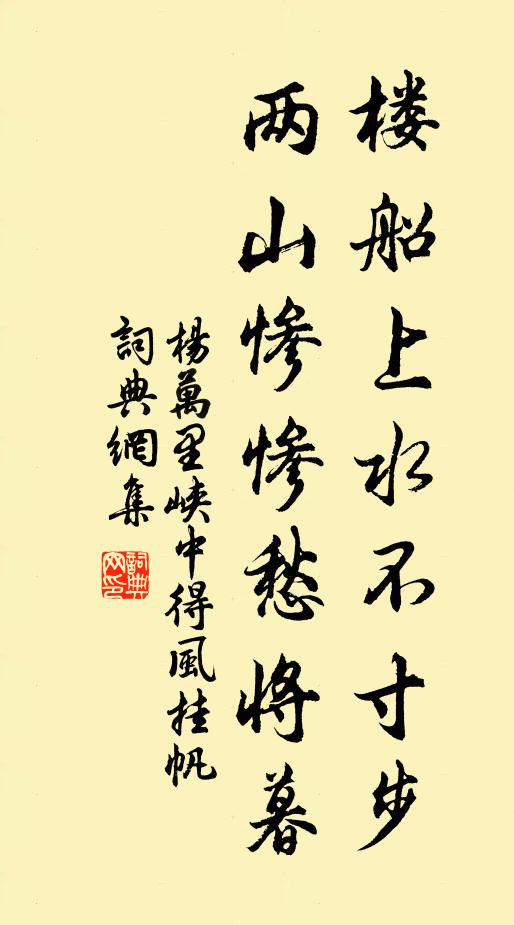 楼船上水不寸步
两山惨惨愁将暮
楊萬里峽中得風挂帆
詞典網集
詞典网印